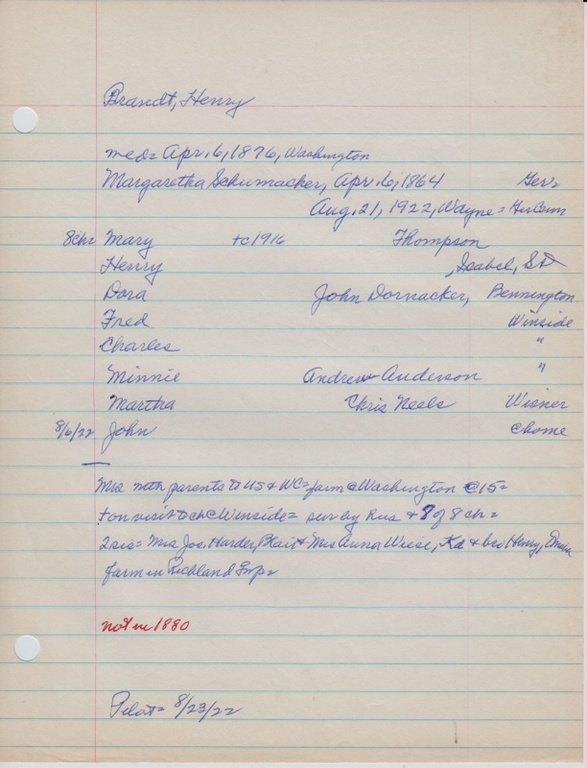 Brandt, Henry
med= Apr. 6, 1876, Washington
Margaretha Schumacker, Apr. 6, 1864 Ger=
Aug. 21, 1922, Wayne =
8chr Mary +c1916 Thompson
Henry Isabel, SD
Dora John Dornacker, Bennington
Fred Winside
Charles "
Minnie Andrew Anderson "
Martha Chris Neels Wisner
8/6/22 John chome
Mrs with parents to US & WC= farm c Washington c15=
+ on visit to ch c Winside= sur by hus + 7 of 8 ch=
2 sis= Mrs Joe. Harder, Blair & Mrs Anna Weise, Kd & bro Henry,
farm in Richland Twp=
not in 1880
Pilot= 8/23/22